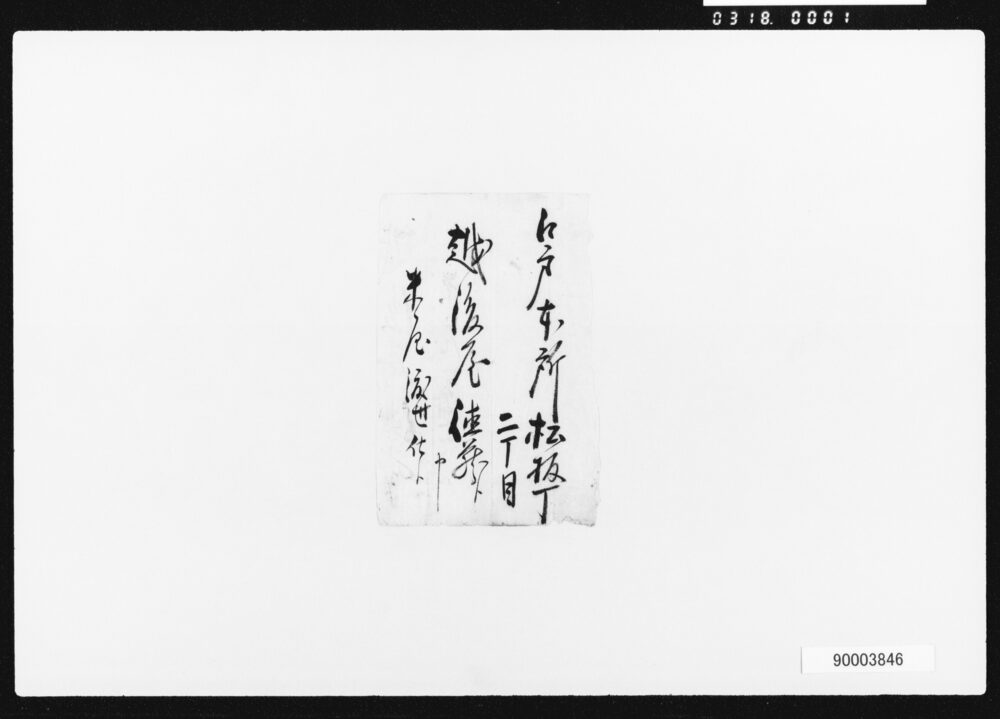 0318. 0001
江戸本所松坂丁
二丁目
越後屋徳蔵
米屋渡世仕
90003846